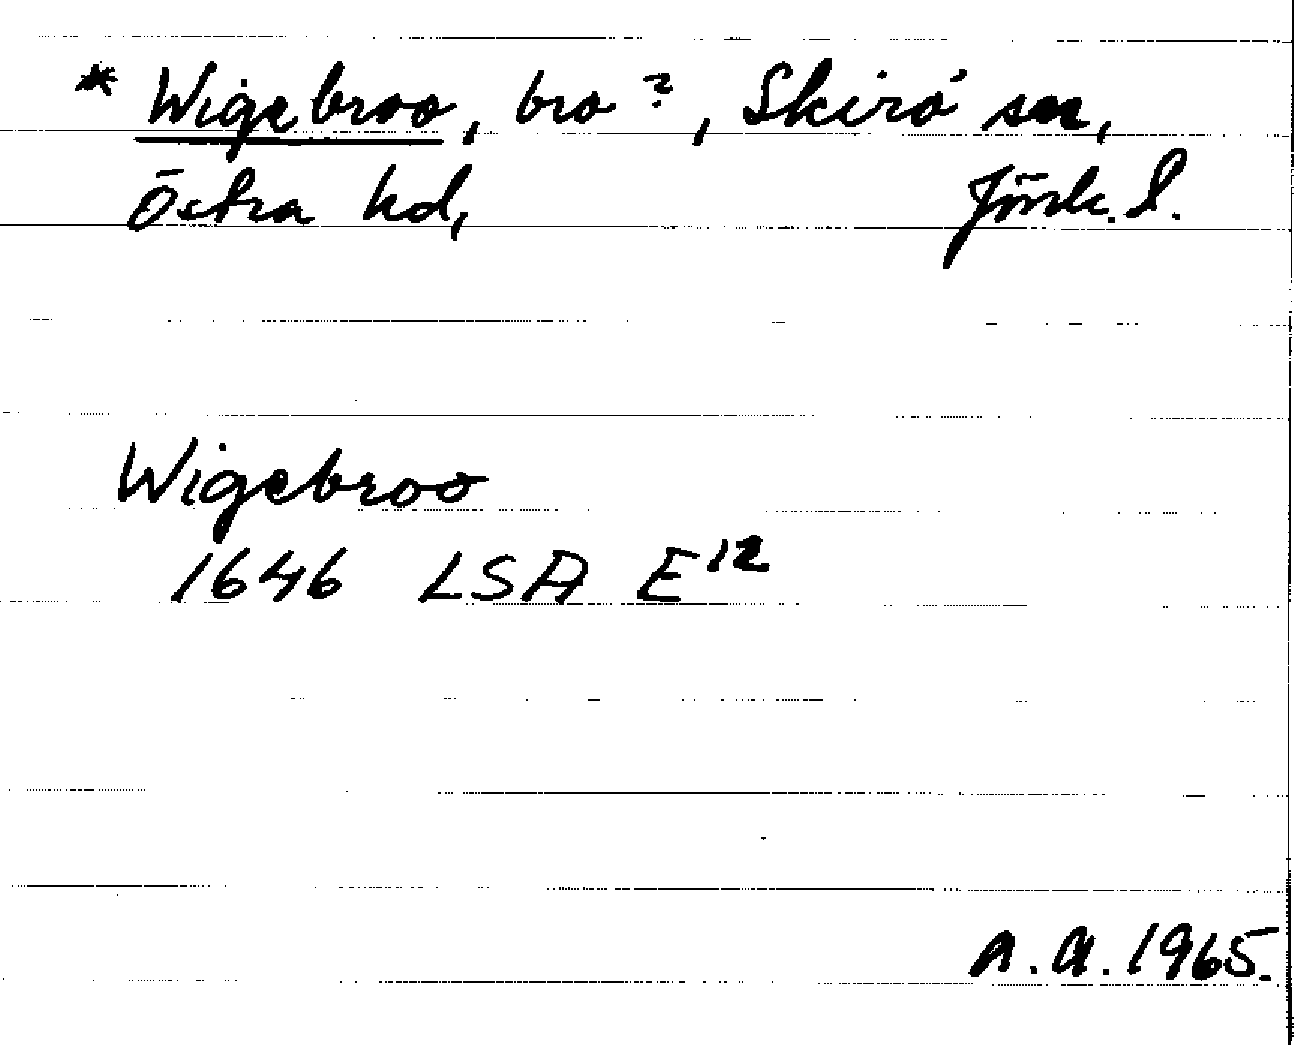 * Wigebroo, bro ?, Skirö sn,
Östra hd, Jönk. l.
Wigebroo
1646 LSA E12
A.A. 1965.